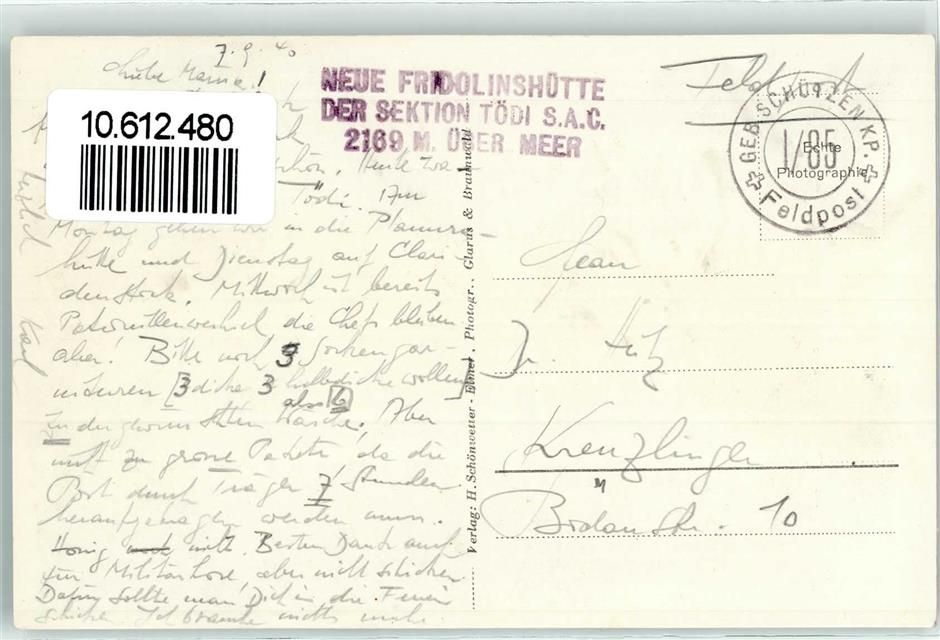 7.9.40
Liebe Mama!
10.612.480
Heute wa-
Tödi. Am
Montag gehen wir in die Planura-
hütte und Dienstag auf Clari-
denstock. Mittwoch ist bereits
Patrouillenwechsel, die Chefs bleiben
aber! Bitte noch 3 Socken gar-
nituren [3 dicke 3 halbdicke wollene]
also 6
zu der gewünschten Wäsche. Aber
nicht zu grosse Pakete, da die
Post durch Träger 7 Stunden
heraufgetragen werden muss.
Honig nicht. Besten Dank auch
für Militärhose, aber nicht schicken.
Dafür sollte man Dich in die Ferien
schicken. Ich brauche nichts mehr.
Herzlich Karl
NEUE FRIDOLINSHÜTTE
DER SEKTION TÖDI S.A.C.
2169 M. ÜBER MEER
Verlag: H. Schönwetter - Elmer, Photogr., Glarus & Braunwald
Feldpost
GEB. SCHÜTZEN KP.
I/85
Feldpost
Echte
Photographie
Frau
Dr. Hitz
Kreuzlingen
Bodanstr. 10